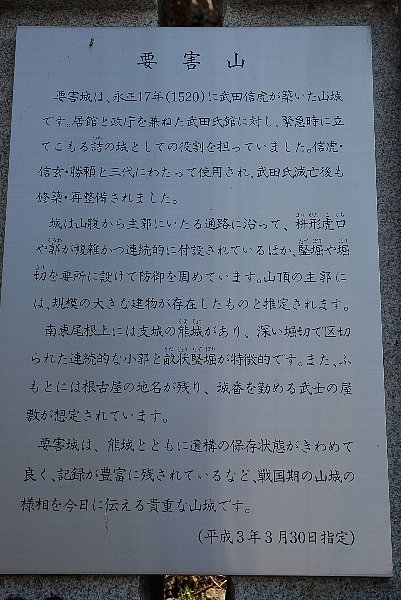 要害山
要害城は、永正17年(1520)に武田信虎が築いた山城
です。居館と政庁を兼ねた武田氏館に対し、緊急時に立
てこもる詰の城としての役割を担っていました。信虎・
信玄・勝頼と三代にわたって使用され、武田氏滅亡後も
修築・再整備されました。
城は山腹から主郭にいたる通路に沿って、枡形虎口
や郭が複雑かつ連続的に付設されているほか、竪堀や堀
切を要所に設けて防御を固めています。山頂の主郭に
は、規模の大きな建物が存在したものと推定されます。
南東尾根上には支城の熊城があり、深い堀切で区切
られた連続的な小郭と畝状竪堀が特徴的です。また、ふ
もとには根古屋の地名が残り、城番を勤める武士の屋
敷が想定されています。
要害城は、熊城とともに遺構の保存状態がきわめて
良く、記録が豊富に残されているなど、戦国期の山城の
様相を今日に伝える貴重な山城です。
(平成3年3月30日指定)